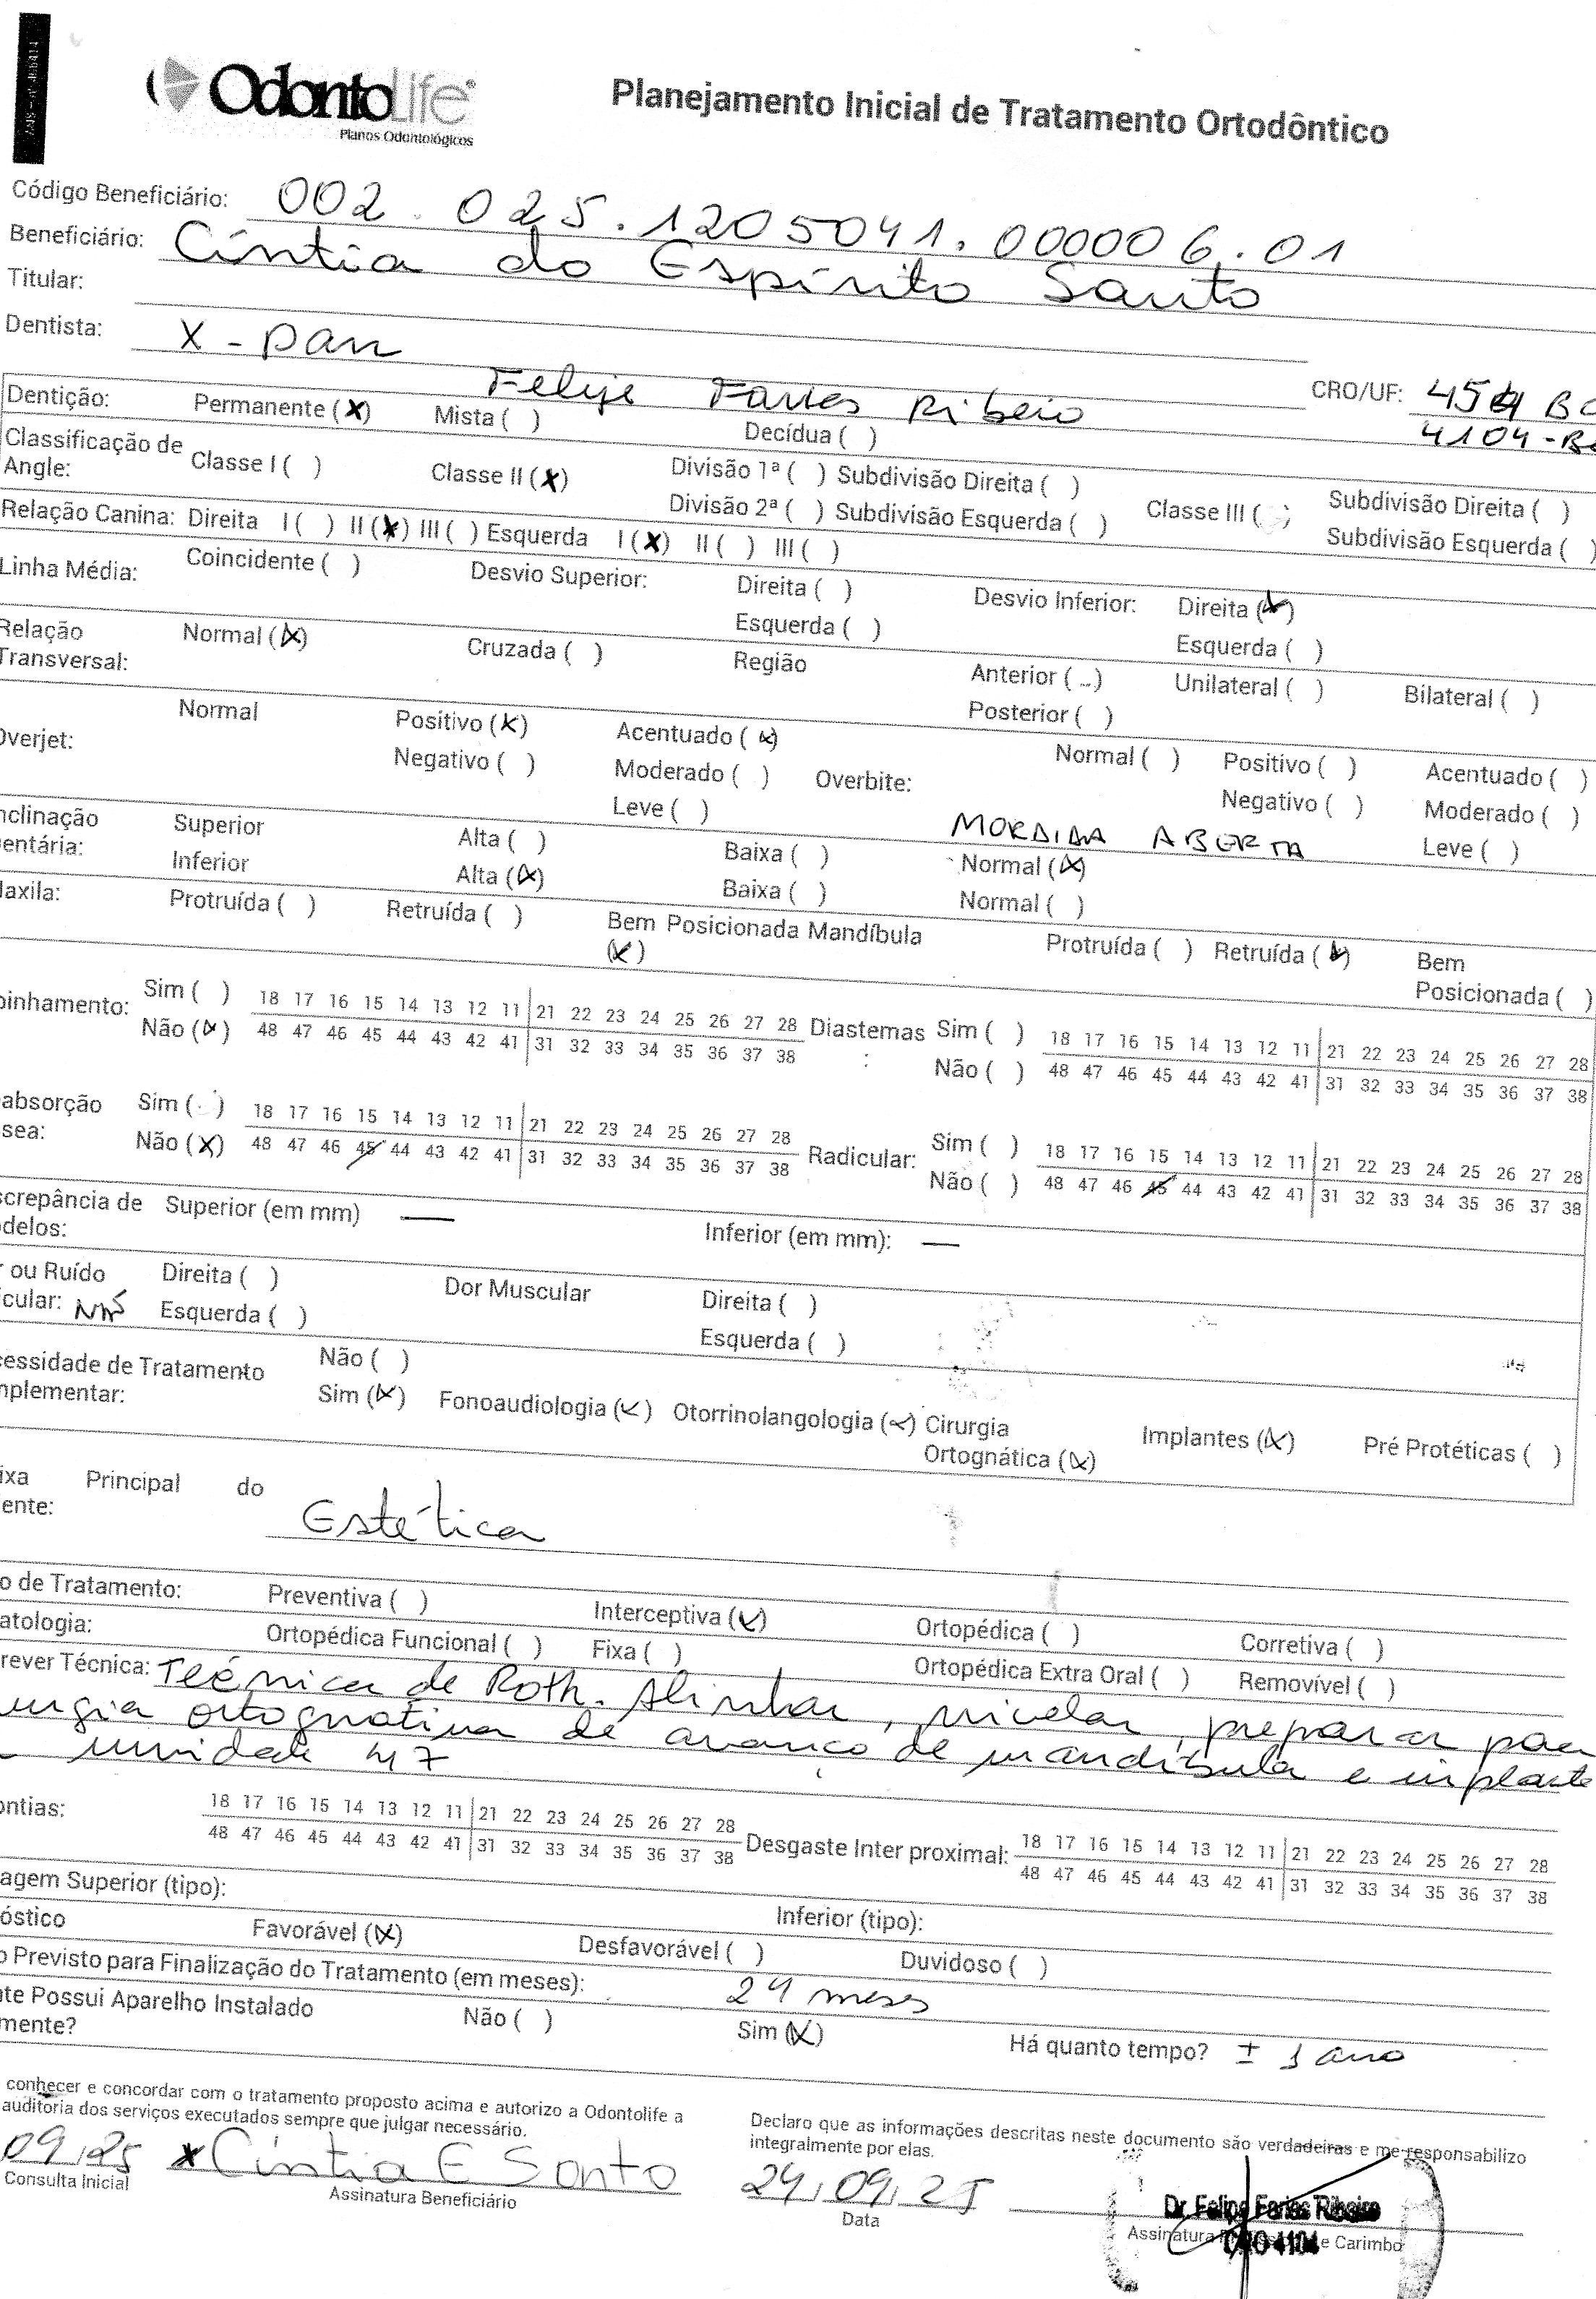 OdontoLife®
Planos Odontológicos
Planejamento Inicial de Tratamento Ortodôntico
Código Beneficiário: 002.025.1205041.000006.01
Beneficiário: Cíntia do Espírito Santo
Titular:
Dentista: X-Pan Felipe Farias Ribeiro CRO/UF:
4104-
Dentição: Permanente (X) Mista ( ) Decídua ( )
Classificação de Angle: Classe I ( ) Classe II (X) Divisão 1ª ( ) Subdivisão Direita ( ) Divisão 2ª ( ) Subdivisão Esquerda ( ) Classe III ( ) Subdivisão Direita ( ) Subdivisão Esquerda ( )
Relação Canina: Direita I ( ) II (X) III ( ) Esquerda I (X) II ( ) III ( )
Linha Média: Coincidente ( ) Desvio Superior: Direita ( ) Esquerda ( ) Desvio Inferior: Direita (X) Esquerda ( )
Relação Transversal: Normal (X) Cruzada ( ) Região Anterior ( ) Posterior ( ) Unilateral ( ) Bilateral ( )
Overjet: Normal Positivo (X) Negativo ( ) Acentuado (X) Moderado ( ) Leve ( ) Overbite: Normal ( ) Positivo ( ) Negativo ( ) Acentuado ( ) Moderado ( ) Leve ( )
MORDIDA ABERTA
nclinação entária: Superior Alta ( ) Baixa ( ) Normal (X)
Inferior Alta (X) Baixa ( ) Normal ( )
axila: Protruída ( ) Retruída ( ) Bem Posicionada (X) Mandíbula Protruída ( ) Retruída (X) Bem Posicionada ( )
pinhamento: Sim ( ) Não (X)
18 17 16 15 14 13 12 11 21 22 23 24 25 26 27 28
48 47 46 45 44 43 42 41 31 32 33 34 35 36 37 38
Diastemas: Sim ( ) Não ( )
18 17 16 15 14 13 12 11 21 22 23 24 25 26 27 28
48 47 46 45 44 43 42 41 31 32 33 34 35 36 37 38
absorção sea: Sim ( ) Não (X)
18 17 16 15 14 13 12 11 21 22 23 24 25 26 27 28
48 47 46 45 44 43 42 41 31 32 33 34 35 36 37 38
Radicular: Sim ( ) Não ( )
18 17 16 15 14 13 12 11 21 22 23 24 25 26 27 28
48 47 46 45 44 43 42 41 31 32 33 34 35 36 37 38
screpância de delos: Superior (em mm) — Inferior (em mm): —
ou Ruído cular: Direita ( ) Esquerda ( ) Dor Muscular Direita ( ) Esquerda ( )
cessidade de Tratamento mplementar: Não ( ) Sim (X) Fonoaudiologia (X) Otorrinolangologia (X) Cirurgia Ortognática (X) Implantes (X) Pré Protéticas ( )
ixa Principal do ente: Estética
o de Tratamento: Preventiva ( ) Interceptiva (X) Ortopédica ( ) Corretiva ( )
atologia: Ortopédica Funcional ( ) Fixa ( ) Ortopédica Extra Oral ( ) Removível ( )
rever Técnica: Técnica de Roth. Alinhar, nivelar, preparar para
urgia ortognatica de avanço de mandíbula e implante
unidade 47
ontias:
18 17 16 15 14 13 12 11 21 22 23 24 25 26 27 28
48 47 46 45 44 43 42 41 31 32 33 34 35 36 37 38
Desgaste Inter proximal:
18 17 16 15 14 13 12 11 21 22 23 24 25 26 27 28
48 47 46 45 44 43 42 41 31 32 33 34 35 36 37 38
agem Superior (tipo): Inferior (tipo):
óstico Favorável (X) Desfavorável ( ) Duvidoso ( )
o Previsto para Finalização do Tratamento (em meses): 24 meses
te Possui Aparelho Instalado mente? Não ( ) Sim (X) Há quanto tempo? ± 1 ano
conhecer e concordar com o tratamento proposto acima e autorizo a Odontolife a
auditoria dos serviços executados sempre que julgar necessário.
Declaro que as informações descritas neste documento são verdadeiras e me responsabilizo
integralmente por elas.
09/25 x Cíntia E Santo 24/09/25
Consulta Inicial Assinatura Beneficiário Data
Dr. Felipe Farias Ribeiro
CRO 4104
Assinatura e Carimbo